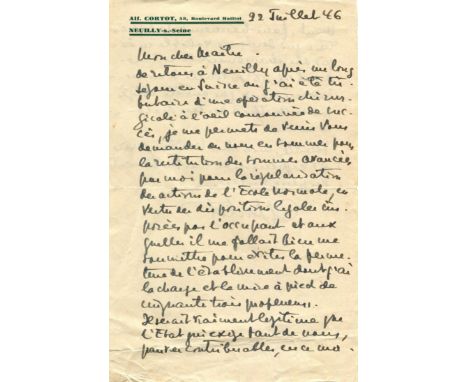 Alf. CORTOT, 58, Boulevard Maillot
NEUILLY-s.-Seine
22 Juillet 46
Mon cher Maître.
de retour à Neuilly après un long
séjour en Suisse où j'ai été tri-
butaire d'une opération chirur-
gicale à l'oeil couronnée de suc-
cès, je me permets de venir vous
demander où nous en sommes pour
la restitution des sommes avancées
par moi pour la régularisation
des actions de l'Ecole Normale, en
vertu des dispositions légales im-
posées par l'occupant et aux
quelles il me fallait bien me
soumettre pour éviter la ferme-
ture de l'établissement dont j'ai
la charge et la mise à pied de
cinquante trois professeurs.
Il serait vraiment légitime que
l'Etat qui exige tant de nous,
pauvres contribuables, en ce mo-